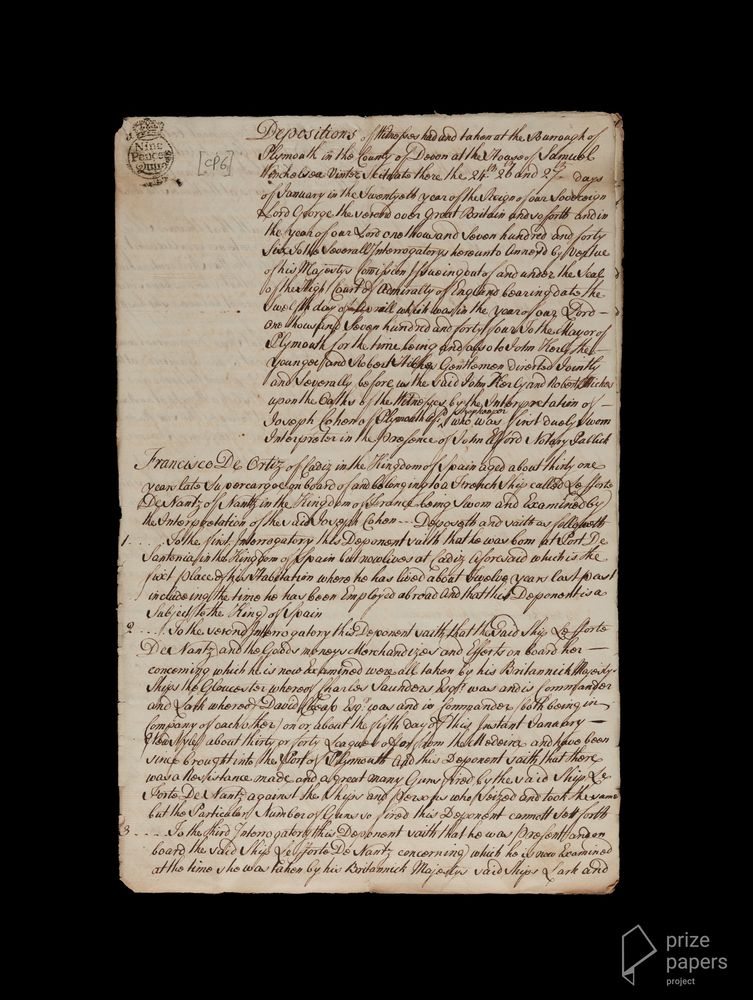 Nine
Pence
[CP6]
Depositions of Witnesses had and taken at the Burrough of
Plymouth in the County of Devon at the House of Samuel
Winchelsea Vintner Scituate there the 24th 26 and 27th days
of January in the Twentyeth year of the Reign of our Sovereign
Lord George the second over Great Britain and so forth and in
the year of our Lord one thousand Seven hundred and forty
Six To the Severall Interrogatorys hereunto Annexed by Vertue
of his Majestys Comission Issueing out of and under the Seal
of the High Court of Admiralty of England bearing date the
Twelfth day of Aprill which was in the year of our Lord
One thousand Seven hundred and forty four To the Mayor of
Plymouth for the time being and also to John Kerly the
younger and Robert Gentlemen directed Jointly
and Severally before us the said John Kerly and Robert
upon the Oaths of the Witnesses by the Interpretation of
Joseph Cohen of Plymouth afsd Shopkeeper who was first duely Sworn
Interpreter in the Presence of John Elford Notary Publick
Francisco De Ortiz of Cadiz in the Kingdom of Spain aged about thirty one
years late Supercargoe on board of and belonging to a French Ship called Le fforte
De Nantz of Nantz in the Kingdom of France being Sworn and Examined by
the Interpretation of the said Joseph Cohen - - Deposeth and saith as followeth
1 . . . . To the first Interrogatory this Deponent saith that he was born at Port De
Santonia in the Kingdom of Spain but now lives at Cadiz aforesaid which is the
fixt place of his Habitation where he has lived about Twelve years last past
includeing the time he has been Employed abroad And that this Deponent is a
Subject to the King of Spain
2 . . . . To the second Interrogatory this Deponent saith that the said Ship Le fforte
De Nantz and the Goods moneys Merchandizes and Effects on board her
concerning which he is now Examined were all taken by his Britannick Majestys
Ships the Gloucester whereof Charles Saunders Esqr. was and is Commander
and Lark whereof David Cheap Esqr. was and is Commander both being in
Company of each other on or about the fifth day of this Instant January
New Style about thirty or forty Leagues of or from the Medeira and have been
since brought into the Port of Plymouth And this Deponent saith that there
was a Resistance made and a great many Guns fired by the said Ship Le
fforte De Nantz against the Ships and Persons who Seized and took the same
but the Particular Number of Guns so fired this Deponent cannott sett forth
3 . . . . To the third Interrogatory this Deponent saith that he was Present and on
board the said Ship Le fforte De Nantz concerning which he is now Examined
at the time she was taken by his Britannick Majestys said Ships Lark and
prize
papers
project